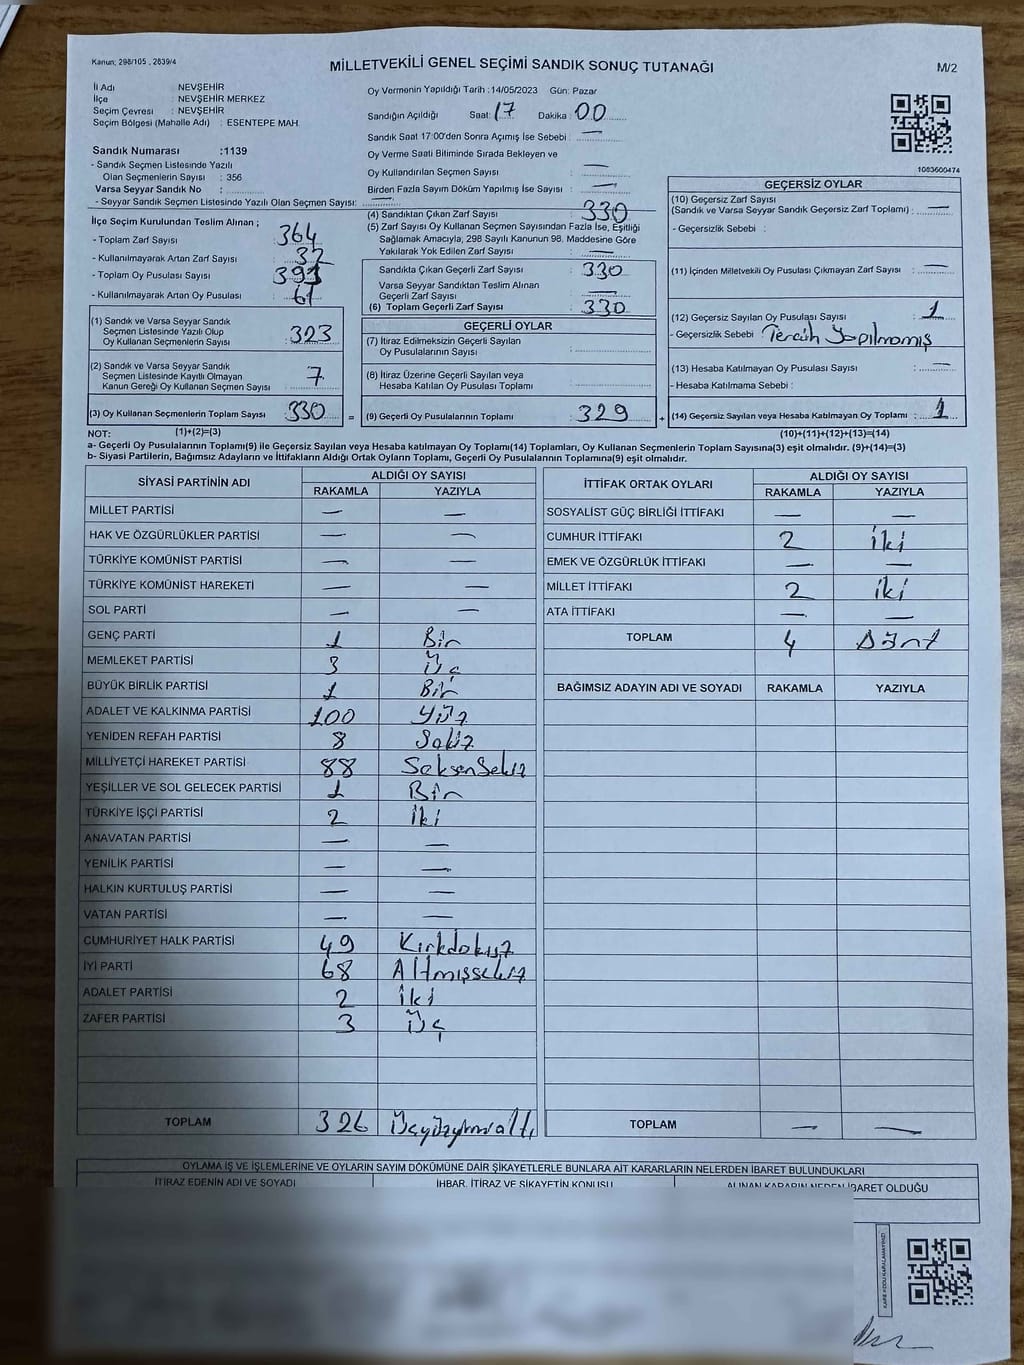 Kanun; 298/105 , 2839/4
MİLLETVEKİLİ GENEL SEÇİMİ SANDIK SONUÇ TUTANAĞI
M/2
İl Adı : NEVŞEHİR
İlçe : NEVŞEHİR MERKEZ
Seçim Çevresi : NEVŞEHİR
Seçim Bölgesi (Mahalle Adı) : ESENTEPE MAH.
Sandık Numarası :1139
- Sandık Seçmen Listesinde Yazılı
Olan Seçmenlerin Sayısı : 356
Varsa Seyyar Sandık No :
- Seyyar Sandık Seçmen Listesinde Yazılı Olan Seçmen Sayısı: —
Oy Vermenin Yapıldığı Tarih :14/05/2023 Gün: Pazar
Sandığın Açıldığı Saat: 17 Dakika : 00
Sandık Saat 17:00'den Sonra Açımış İse Sebebi : —
Oy Verme Saati Bitiminde Sırada Bekleyen ve
Oy Kullandırılan Seçmen Sayısı : —
Birden Fazla Sayım Döküm Yapılmış İse Sayısı : —
1083600474
İlçe Seçim Kurulundan Teslim Alınan ;
- Toplam Zarf Sayısı : 364
- Kullanılmayarak Artan Zarf Sayısı : 32
- Toplam Oy Pusulası Sayısı : 393
- Kullanılmayarak Artan Oy Pusulası : 61
(1) Sandık ve Varsa Seyyar Sandık
Seçmen Listesinde Yazılı Olup
Oy Kullanan Seçmenlerin Sayısı : 323
(2) Sandık ve Varsa Seyyar Sandık
Seçmen Listesinde Kayıtlı Olmayan
Kanun Gereği Oy Kullanan Seçmen Sayısı : 7
(3) Oy Kullanan Seçmenlerin Toplam Sayısı : 330
(1)+(2)=(3)
(4) Sandıktan Çıkan Zarf Sayısı : 330
(5) Zarf Sayısı Oy Kullanan Seçmen Sayısından Fazla İse, Eşitliği
Sağlamak Amacıyla, 298 Sayılı Kanunun 98. Maddesine Göre
Yakılarak Yok Edilen Zarf Sayısı : —
Sandıkta Çıkan Geçerli Zarf Sayısı : 330
Varsa Seyyar Sandıktan Teslim Alınan
Geçerli Zarf Sayısı : —
(6) Toplam Geçerli Zarf Sayısı : 330
GEÇERLİ OYLAR
(7) İtiraz Edilmeksizin Geçerli Sayılan
Oy Pusulalarının Sayısı :
(8) İtiraz Üzerine Geçerli Sayılan veya
Hesaba Katılan Oy Pusulası Toplamı :
= (9) Geçerli Oy Pusulalarının Toplamı : 329 +
GEÇERSİZ OYLAR
(10) Geçersiz Zarf Sayısı
(Sandık ve Varsa Seyyar Sandık Geçersiz Zarf Toplamı) : —
- Geçersizlik Sebebi :
(11) İçinden Milletvekili Oy Pusulası Çıkmayan Zarf Sayısı : —
(12) Geçersiz Sayılan Oy Pusulası Sayısı : 1
- Geçersizlik Sebebi : Tercih Yapılmamış
(13) Hesaba Katılmayan Oy Pusulası Sayısı : —
- Hesaba Katılmama Sebebi :
(14) Geçersiz Sayılan veya Hesaba Katılmayan Oy Toplamı : 1
(10)+(11)+(12)+(13)=(14)
NOT:
a- Geçerli Oy Pusulalarının Toplamı(9) ile Geçersiz Sayılan veya Hesaba katılmayan Oy Toplamı(14) Toplamları, Oy Kullanan Seçmenlerin Toplam Sayısına(3) eşit olmalıdır. (9)+(14)=(3)
b- Siyasi Partilerin, Bağımsız Adayların ve İttifakların Aldığı Ortak Oyların Toplamı, Geçerli Oy Pusulalarının Toplamına(9) eşit olmalıdır.
SİYASİ PARTİNİN ADI ALDIĞI OY SAYISI
RAKAMLA YAZIYLA
MİLLET PARTİSİ — —
HAK VE ÖZGÜRLÜKLER PARTİSİ — —
TÜRKİYE KOMÜNİST PARTİSİ — —
TÜRKİYE KOMÜNİST HAREKETİ — —
SOL PARTİ — —
GENÇ PARTİ 1 Bir
MEMLEKET PARTİSİ 3 Üç
BÜYÜK BİRLİK PARTİSİ 1 Bir
ADALET VE KALKINMA PARTİSİ 100 Yüz
YENİDEN REFAH PARTİSİ 8 Sekiz
MİLLİYETÇİ HAREKET PARTİSİ 88 Seksensekiz
YEŞİLLER VE SOL GELECEK PARTİSİ 1 Bir
TÜRKİYE İŞÇİ PARTİSİ 2 İki
ANAVATAN PARTİSİ — —
YENİLİK PARTİSİ — —
HALKIN KURTULUŞ PARTİSİ — —
VATAN PARTİSİ — —
CUMHURİYET HALK PARTİSİ 49 Kırkdokuz
İYİ PARTİ 68 Altmışsekiz
ADALET PARTİSİ 2 İki
ZAFER PARTİSİ 3 Üç
TOPLAM 326 Üçyüzyirmialtı
İTTİFAK ORTAK OYLARI ALDIĞI OY SAYISI
RAKAMLA YAZIYLA
SOSYALİST GÜÇ BİRLİĞİ İTTİFAKI — —
CUMHUR İTTİFAKI 2 İki
EMEK VE ÖZGÜRLÜK İTTİFAKI — —
MİLLET İTTİFAKI 2 iki
ATA İTTİFAKI — —
TOPLAM 4 Dört
BAĞIMSIZ ADAYIN ADI VE SOYADI RAKAMLA YAZIYLA
TOPLAM — —
OYLAMA İŞ VE İŞLEMLERİNE VE OYLARIN SAYIM DÖKÜMÜNE DAİR ŞİKAYETLERLE BUNLARA AİT KARARLARIN NELERDEN İBARET BULUNDUKLARI
İTİRAZ EDENİN ADI VE SOYADI İHBAR, İTİRAZ VE ŞİKAYETİN KONUSU ALINAN KARARIN NEDEN İBARET OLDUĞU
KARE KODU KARALAMAYINIZ!